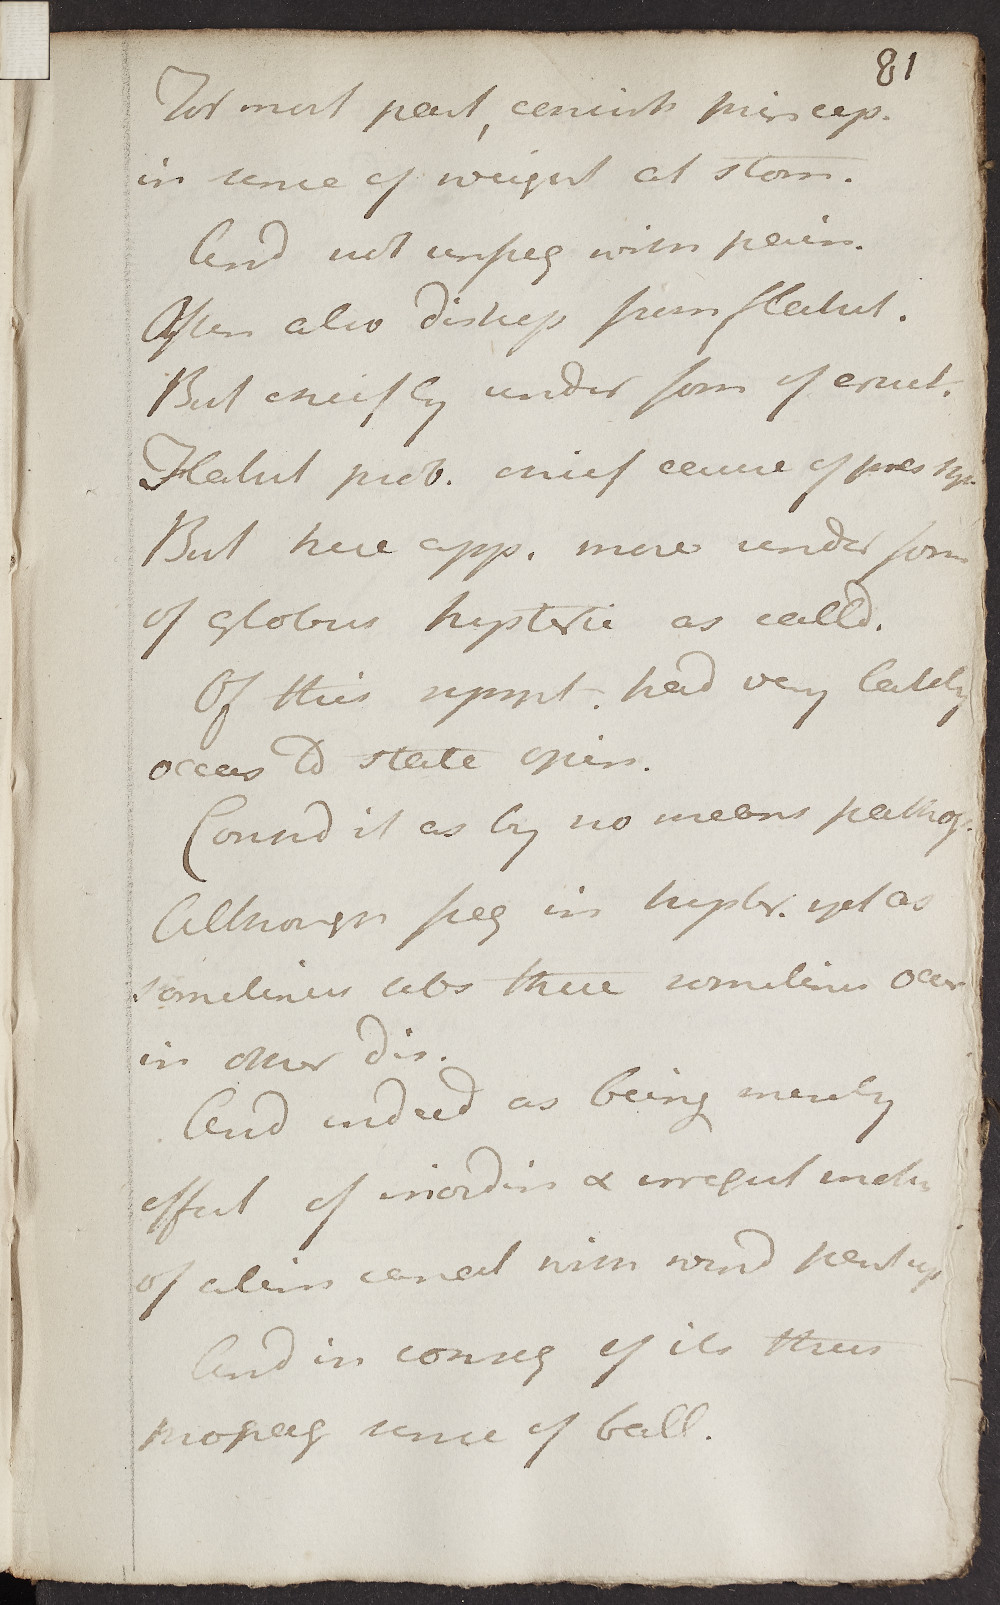 81
For most part, consists princep.
in sense of weight at stom.
And not unfreq with pain.
Often also distress from flatul.
But chiefly under form of eruct.
Flatul prob. chief cause of pres sy.
But here app. more under form
of globus hysteric as calld.
Of this sympt. had very lately
occas to state opin.
Consid it as by no means pathog.
Although freq in hyster. yet as
sometimes abs there sometimes occur
in other dis.
And indeed as being merely
effect of inordin & irregul motio
of alim canal with wind pent up
And in conseq of its thus
propag sense of ball.